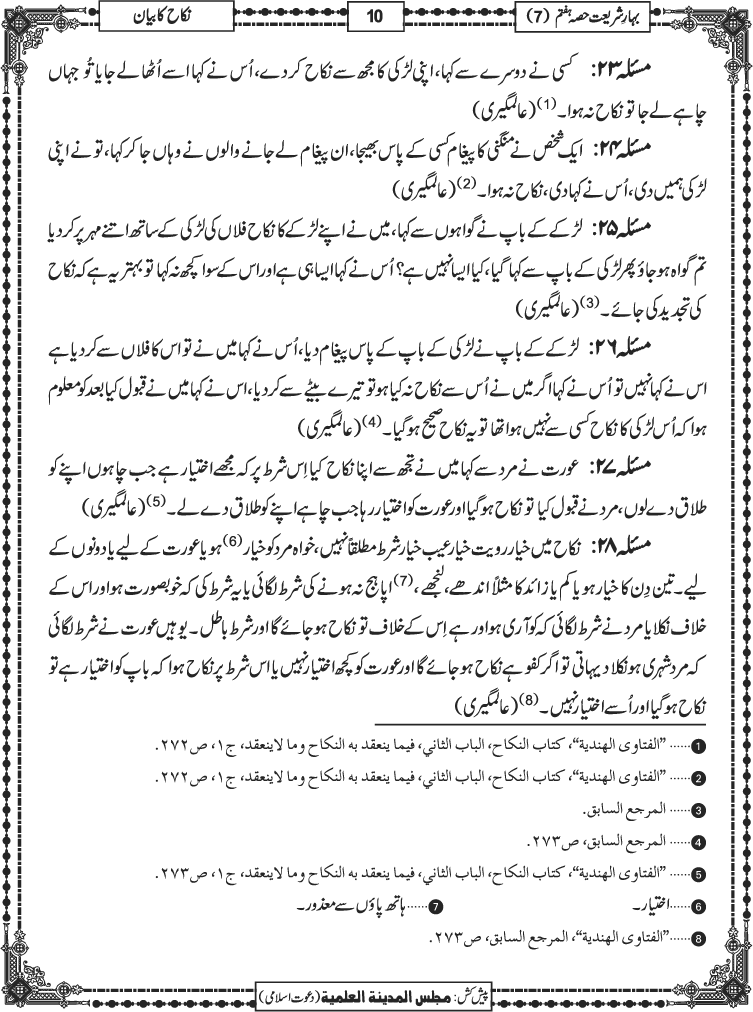 بہارِ شریعت حصہ ہفتم (7)
10
نکاح کا بیان
مسئلہ ۲۳: کسی نے دوسرے سے کہا، اپنی لڑکی کا مجھ سے نکاح کر دے، اُس نے کہا اسے اُٹھا لے جا یا تُو جہاں
چاہے لے جا تو نکاح نہ ہوا۔(1) (عالمگیری)
مسئلہ ۲۴: ایک شخص نے منگنی کا پیغام کسی کے پاس بھیجا، ان پیغام لے جانے والوں نے وہاں جا کر کہا، تو نے اپنی
لڑکی ہمیں دی، اُس نے کہا دی، نکاح نہ ہوا۔(2) (عالمگیری)
مسئلہ ۲۵: لڑکے کے باپ نے گواہوں سے کہا، میں نے اپنے لڑکے کا نکاح فلاں کی لڑکی کے ساتھ اتنے مہر پر کر دیا
تم گواہ ہو جاؤ پھر لڑکی کے باپ سے کہا گیا، کیا ایسا نہیں ہے؟ اُس نے کہا ایسا ہی ہے اور اس کے سوا کچھ نہ کہا تو بہتر یہ ہے کہ نکاح
کی تجدید کی جائے۔(3) (عالمگیری)
مسئلہ ۲۶: لڑکے کے باپ نے لڑکی کے باپ کے پاس پیغام دیا، اُس نے کہا میں نے تو اس کا فلاں سے کر دیا ہے
اس نے کہا نہیں تو اُس نے کہا اگر میں نے اُس سے نکاح نہ کیا ہو تو تیرے بیٹے سے کر دیا، اس نے کہا میں نے قبول کیا بعد کو معلوم
ہوا کہ اُس لڑکی کا نکاح کسی سے نہیں ہوا تھا تو یہ نکاح صحیح ہوگیا۔(4) (عالمگیری)
مسئلہ ۲۷: عورت نے مرد سے کہا میں نے تجھ سے اپنا نکاح کیا اِس شرط پر کہ مجھے اختیار ہے جب چاہوں اپنے کو
طلاق دے لوں، مرد نے قبول کیا تو نکاح ہوگیا اور عورت کو اختیار رہا جب چاہے اپنے کو طلاق دے لے۔(5) (عالمگیری)
مسئلہ ۲۸: نکاح میں خیار رویت خیار عیب خیار شرط مطلقاً نہیں، خواہ مرد کو خیار(6) ہو یا عورت کے لیے یا دونوں کے
لیے۔ تین دِن کا خیار ہو یا کم یا زائد کا مثلاً اندھے، لنجھے،(7) اپاہج نہ ہونے کی شرط لگائی یا یہ شرط کی کہ خوبصورت ہو اور اس کے
خلاف نکلا یا مرد نے شرط لگائی کہ کوآری ہو اور ہے اِس کے خلاف تو نکاح ہو جائے گا اور شرط باطل۔ یوہیں عورت نے شرط لگائی
کہ مرد شہری ہو نکلا دیہاتی تو اگر کفو ہے نکاح ہو جائے گا اور عورت کو کچھ اختیار نہیں یا اس شرط پر نکاح ہوا کہ باپ کو اختیار ہے تو
نکاح ہوگیا اور اُسے اختیار نہیں۔(8) (عالمگیری)
1...... ”الفتاوی الهندية“، كتاب النكاح، الباب الثاني، فيما ينعقد به النكاح وما لاينعقد، ج١، ص٢٧٢.
2...... ”الفتاوی الهندية“، كتاب النكاح، الباب الثاني، فيما ينعقد به النكاح وما لاينعقد، ج١، ص٢٧٢.
3...... المرجع السابق.
4...... المرجع السابق، ص٢٧٣.
5...... ”الفتاوی الهندية“، كتاب النكاح، الباب الثاني، فيما ينعقد به النكاح وما لاينعقد، ج١، ص٢٧٣.
6......اختیار۔ 7......ہاتھ پاؤں سے معذور۔
8......”الفتاوی الهندية“، المرجع السابق، ص٢٧٣.
پیش کش: مجلس المدينة العلمية (دعوت اسلامی)